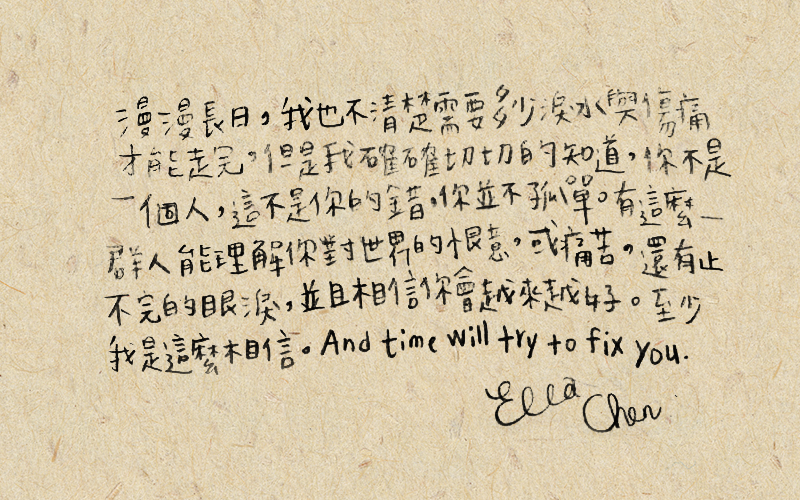 漫漫長日，我也不清楚需要多少淚水與傷痛
才能走完，但是我確確切切的知道，你不是
一個人，這不是你的錯，你並不孤單。有這麼一
群人能理解你對世界的恨意，或痛苦，還有止
不完的眼淚，並且相信你會越來越好。至少
我是這麼相信。And time will try to fix you.
Ella Chen